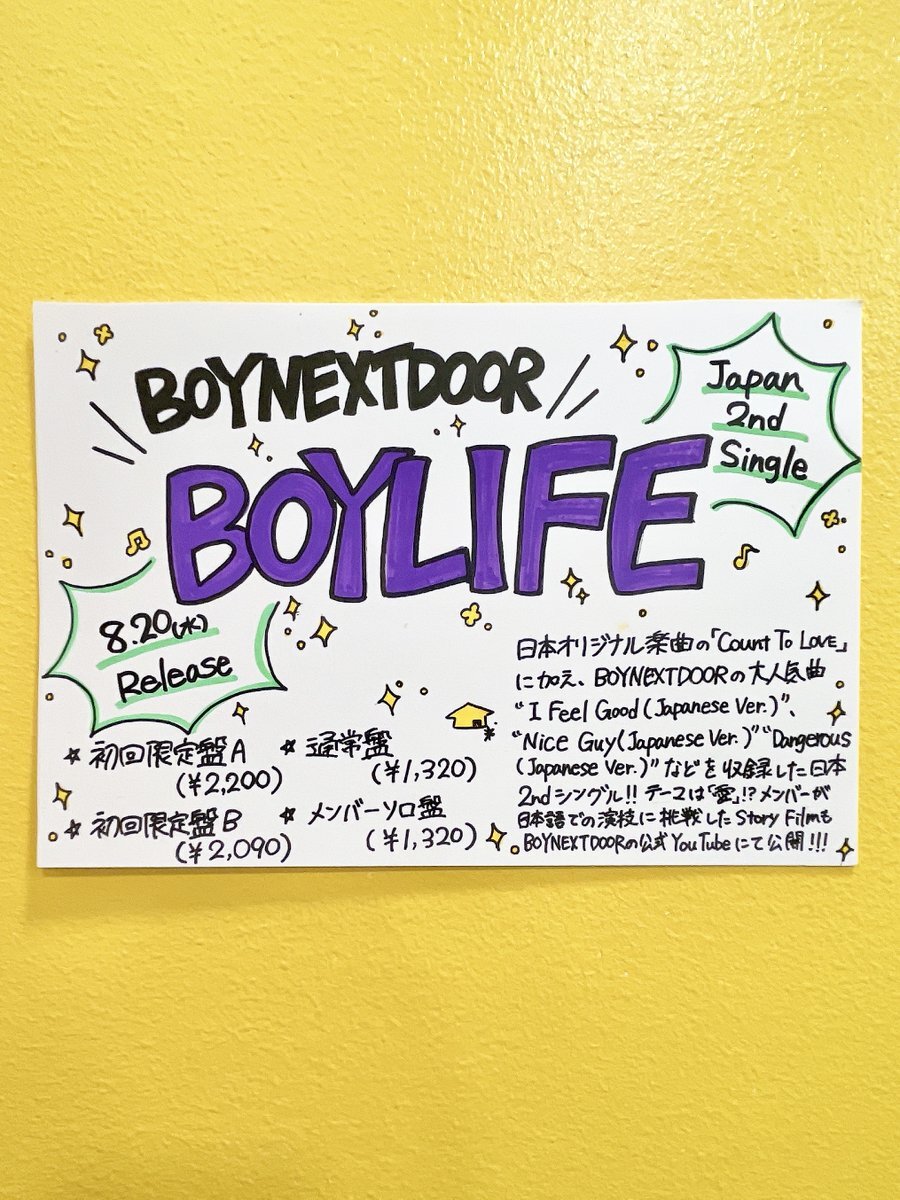 BOYNEXTDOOR
BOYLIFE
Japan
2nd
Single
8.20(水)
Release
☆ 初回限定盤A
(¥2,200)
☆ 初回限定盤B
(¥2,090)
☆ 通常盤
(¥1,320)
☆ メンバーソロ盤
(¥1,320)
日本オリジナル楽曲の「Count To Love」
に加え、BOYNEXTDOORの大人気曲
"I Feel Good (Japanese Ver.)"、
"Nice Guy (Japanese Ver.)" "Dangerous
(Japanese Ver.)" などを収録した日本
2ndシングル!! テーマは「愛」!? メンバーが
日本語での演技に挑戦したStory Filmも
BOYNEXTDOORの公式YouTubeにて公開!!!